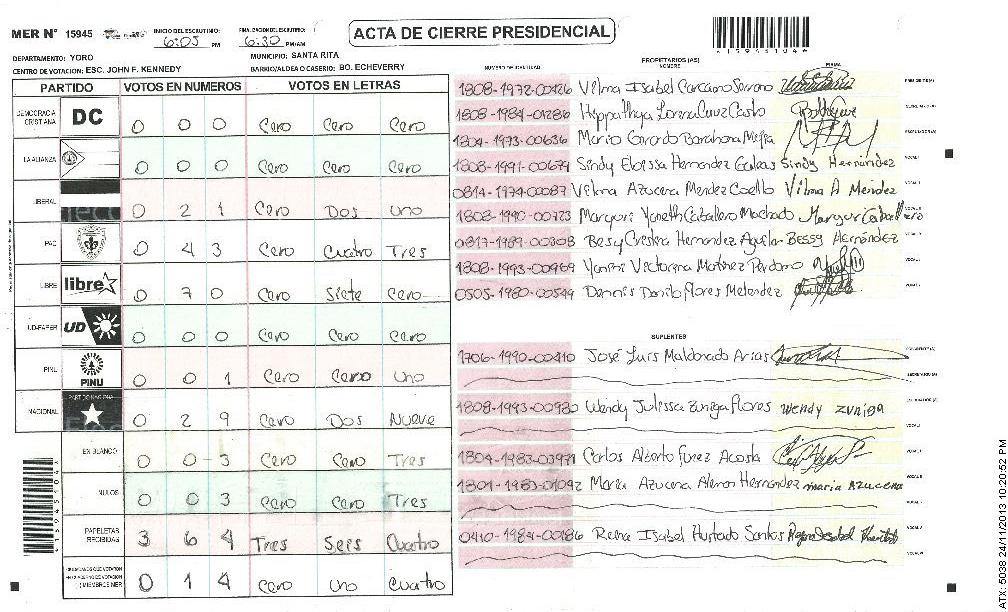 MER N° 15945
INICIO DEL ESCRUTINIO: 6:05 PM
FINALIZACION DEL ESCRUTINIO: 6:30 PM/AM
ACTA DE CIERRE PRESIDENCIAL
DEPARTAMENTO: YORO
MUNICIPIO: SANTA RITA
CENTRO DE VOTACION: ESC. JOHN F. KENNEDY
BARRIO/ALDEA O CASERIO: BO. ECHEVERRY
PARTIDO VOTOS EN NUMEROS VOTOS EN LETRAS
DEMOCRACIA CRISTIANA DC 0 0 0 Cero Cero Cero
LA ALIANZA 0 0 0 Cero Cero Cero
LIBERAL 0 2 1 Cero Dos Uno
PAC 0 4 3 Cero Cuatro Tres
LIBRE libre 0 7 0 Cero Siete Cero
UD-FAPER UD 0 0 0 Cero Cero Cero
PINU PINU 0 0 1 Cero Cero Uno
NACIONAL PARTIDO NACIONAL 0 2 9 Cero Dos Nueve
EN BLANCO 0 0 - 3 Cero Cero Tres
NULOS 0 0 3 Cero Cero Tres
PAPELETAS RECIBIDAS 3 6 4 Tres Seis Cuatro
0 1 4 Cero Uno Cuatro
NUMERO DE IDENTIDAD PROPIETARIOS (AS) NOMBRE FIRMA
Vilma Isabel Carcamo Serrano
1808-1984-01286 Hyppathya Lorena Cruz Castro
1804-1973-00636 Mario Gerardo Barahona Mejia
1808-1991-00679 Sindy Eloissa Hernandez Sindy Hernández
0814-1974-00087 Vilma Azucena Mendez Coello Vilma A Mendez
1808-1990-00723 Margori Yaneth Caballero Machado
Besy Cristina Hernandez Aguilar BESSY Hernández
1808-1993-00969
0505-1980-00549 Dennis Danilo Flores Melendez
SUPLENTES
1706-1990-00410 José Luis Maldonado Arias
1808-1993-00980 Wendy Julissa Zuniga Flores Wendy Zuniga
1804-1983-03971 Carlos Alberto Funez Acosta
1801-1983-01092 Maria Azucena Hernandez maria Azucena
0410-1984-00186 Reina Isabel Hurtado Santos
ATX: 5038 24/11/2013 10:20:52 PM